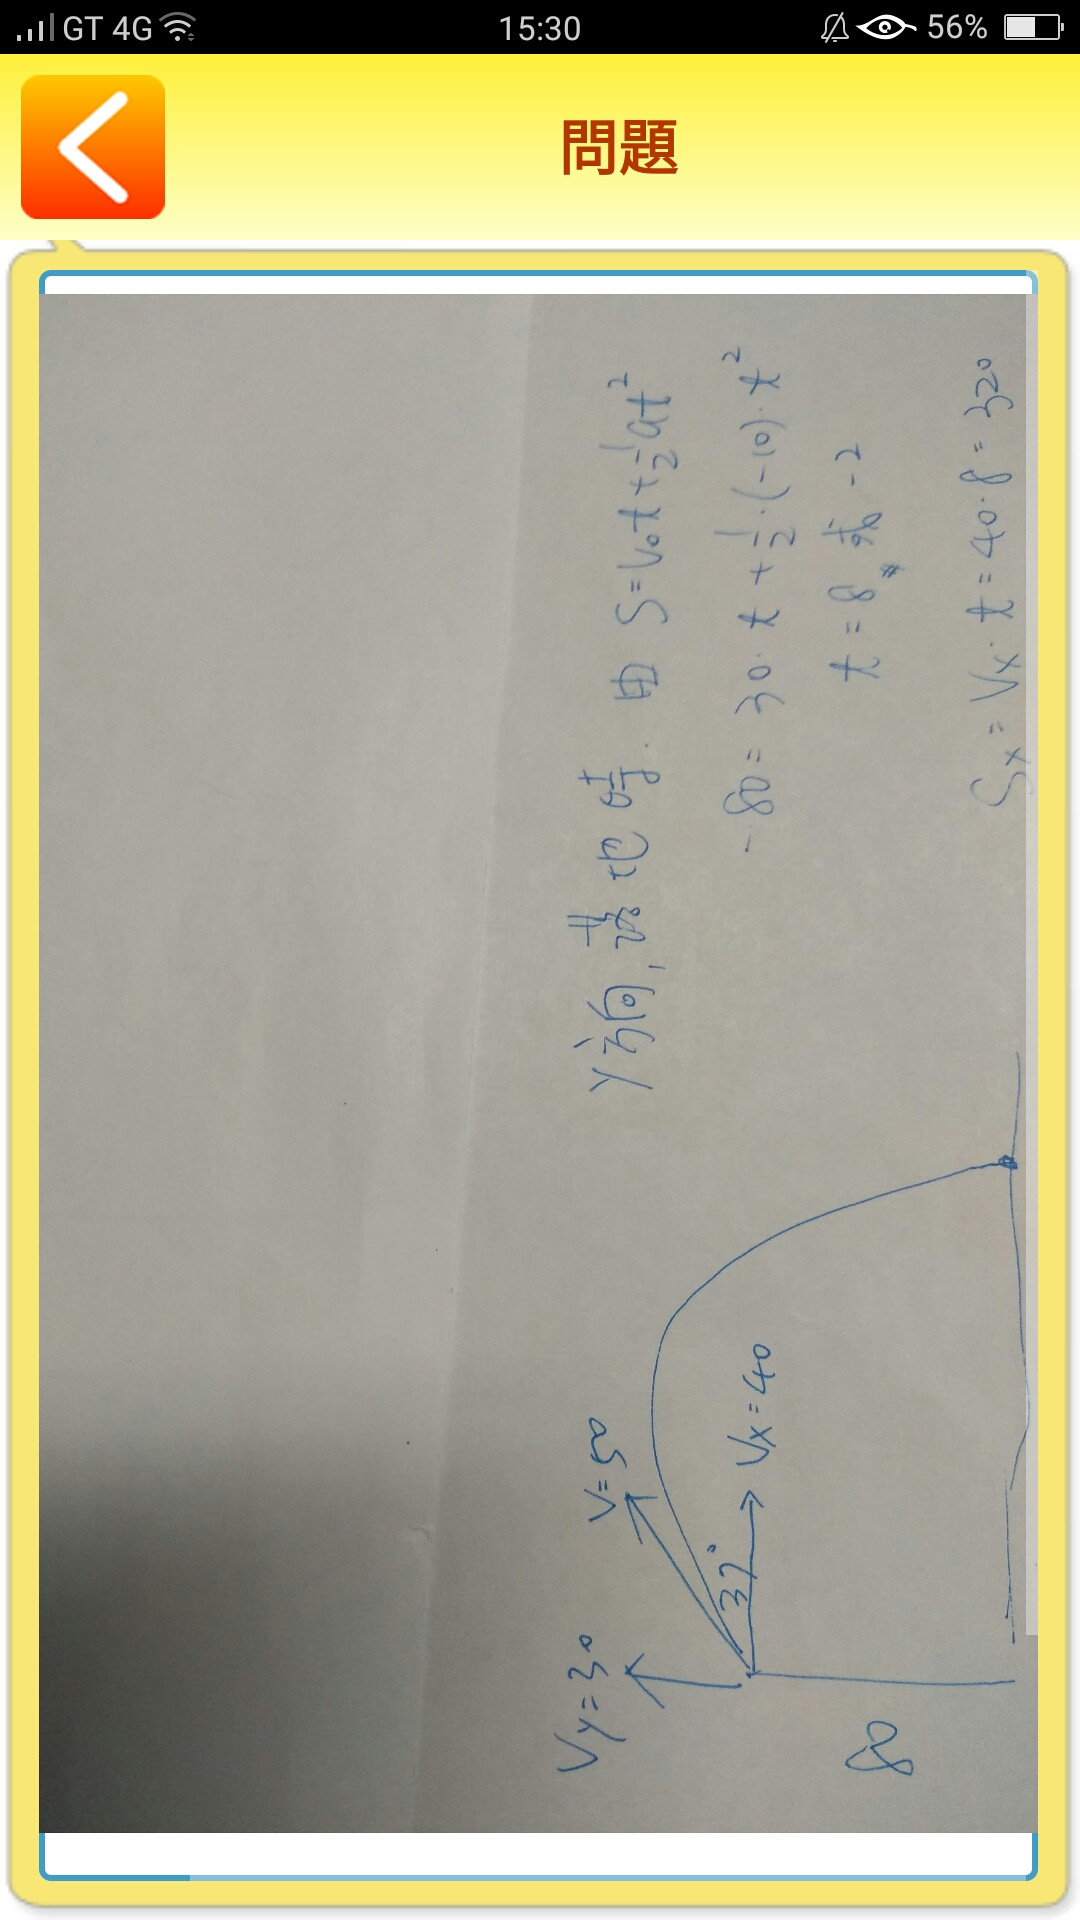 GT 4G 15:30 56%
問題
Y方向, 落地時. 由 S=V₀t+½at²
-80=30·t+½·(-10)·t²
t=8 或 -2
Sx=Vx·t=40·8=320
Vy=30
V=50
37°
Vx=40
80